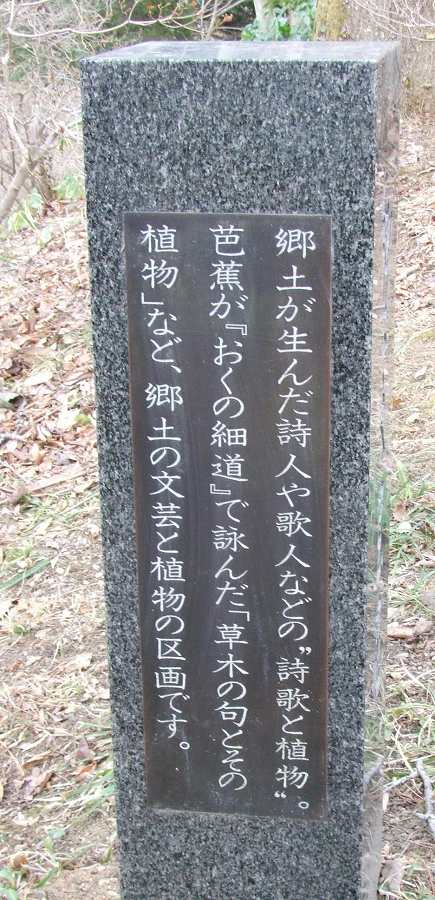 郷土が生んだ詩人や歌人などの”詩歌と植物“。
芭蕉が『おくの細道』で詠んだ「草木の句とその
植物」など、郷土の文芸と植物の区画です。